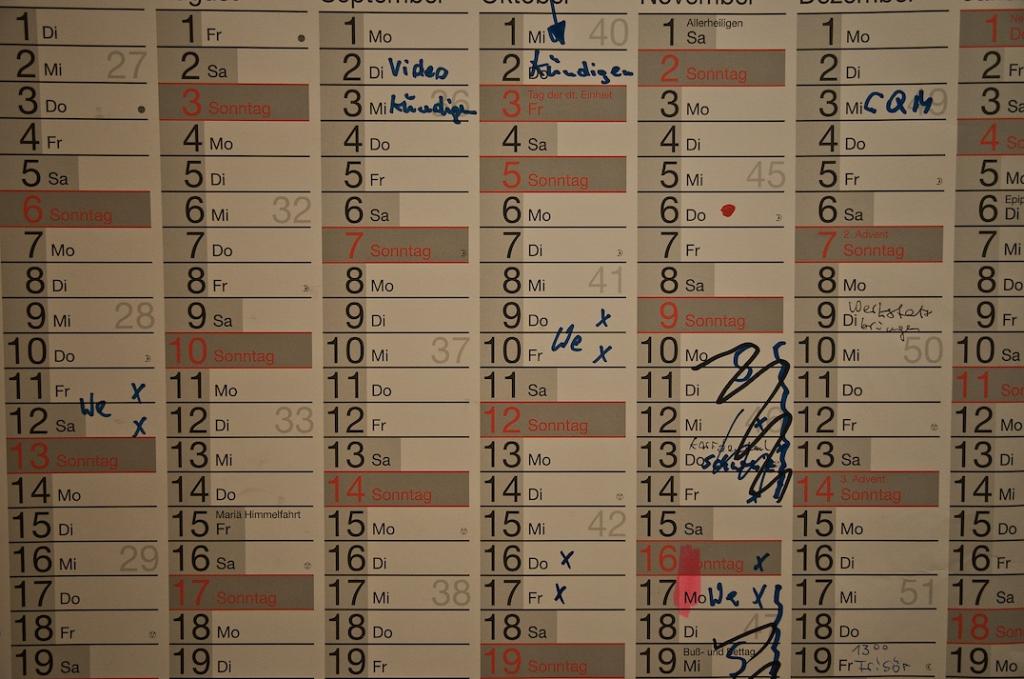 1 Di
2 Mi 27
3 Do
4 Fr
5 Sa
6 Sonntag
7 Mo
8 Di
9 Mi 28
10 Do
11 Fr x
We
12 Sa x
13 Sonntag
14 Mo
15 Di
16 Mi 29
17 Do
18 Fr
19 Sa
gust
1 Fr
2 Sa
3 Sonntag
4 Mo
5 Di
6 Mi 32
7 Do
8 Fr
9 Sa
10 Sonntag
11 Mo
12 Di 33
13 Mi
14 Do
15 Mariä Himmelfahrt
Fr
16 Sa
17 Sonntag
18 Mo
19 Di
September
1 Mo
2 Di Video
3 Mi kündigen 36
4 Do
5 Fr
6 Sa
7 Sonntag
8 Mo
9 Di
10 Mi 37
11 Do
12 Fr
13 Sa
14 Sonntag
15 Mo
16 Di
17 Mi 38
18 Do
19 Fr
Oktober
1 Mi 40
2 Do kündigen
3 Tag der dt. Einheit
Fr
4 Sa
5 Sonntag
6 Mo
7 Di
8 Mi 41
9 Do x
10 Fr We x
11 Sa
12 Sonntag
13 Mo
14 Di
15 Mi 42
16 Do x
17 Fr x
18 Sa
19 Sonntag
November
1 Allerheiligen
Sa
2 Sonntag
3 Mo
4 Di
5 Mi 45
6 Do
7 Fr
8 Sa
9 Sonntag
10 Mo
11 Di
12 Mi x
13 Do
14 Fr x
15 Sa
16 Sonntag x
17 Mo We x
18 Di 47
19 Buß- und Bettag
Mi
Dezember
1 Mo
2 Di
3 Mi CQM 49
4 Do
5 Fr
6 Sa
7 2. Advent
Sonntag
8 Mo
9 Di Werkstatt
bringen
10 Mi 50
11 Do
12 Fr
13 Sa
14 3. Advent
Sonntag
15 Mo
16 Di
17 Mi 51
18 Do
19 Fr 13 00
Frisör
1
2 Fr
3 Sa
4 So
5 Mo
6 Epip
Di
7 Mi
8 Do
9 Fr
10 Sa
11 So
12 Mo
13 Di
14 Mi
15 Do
16 Fr
17 Sa
18 So
19 Mo